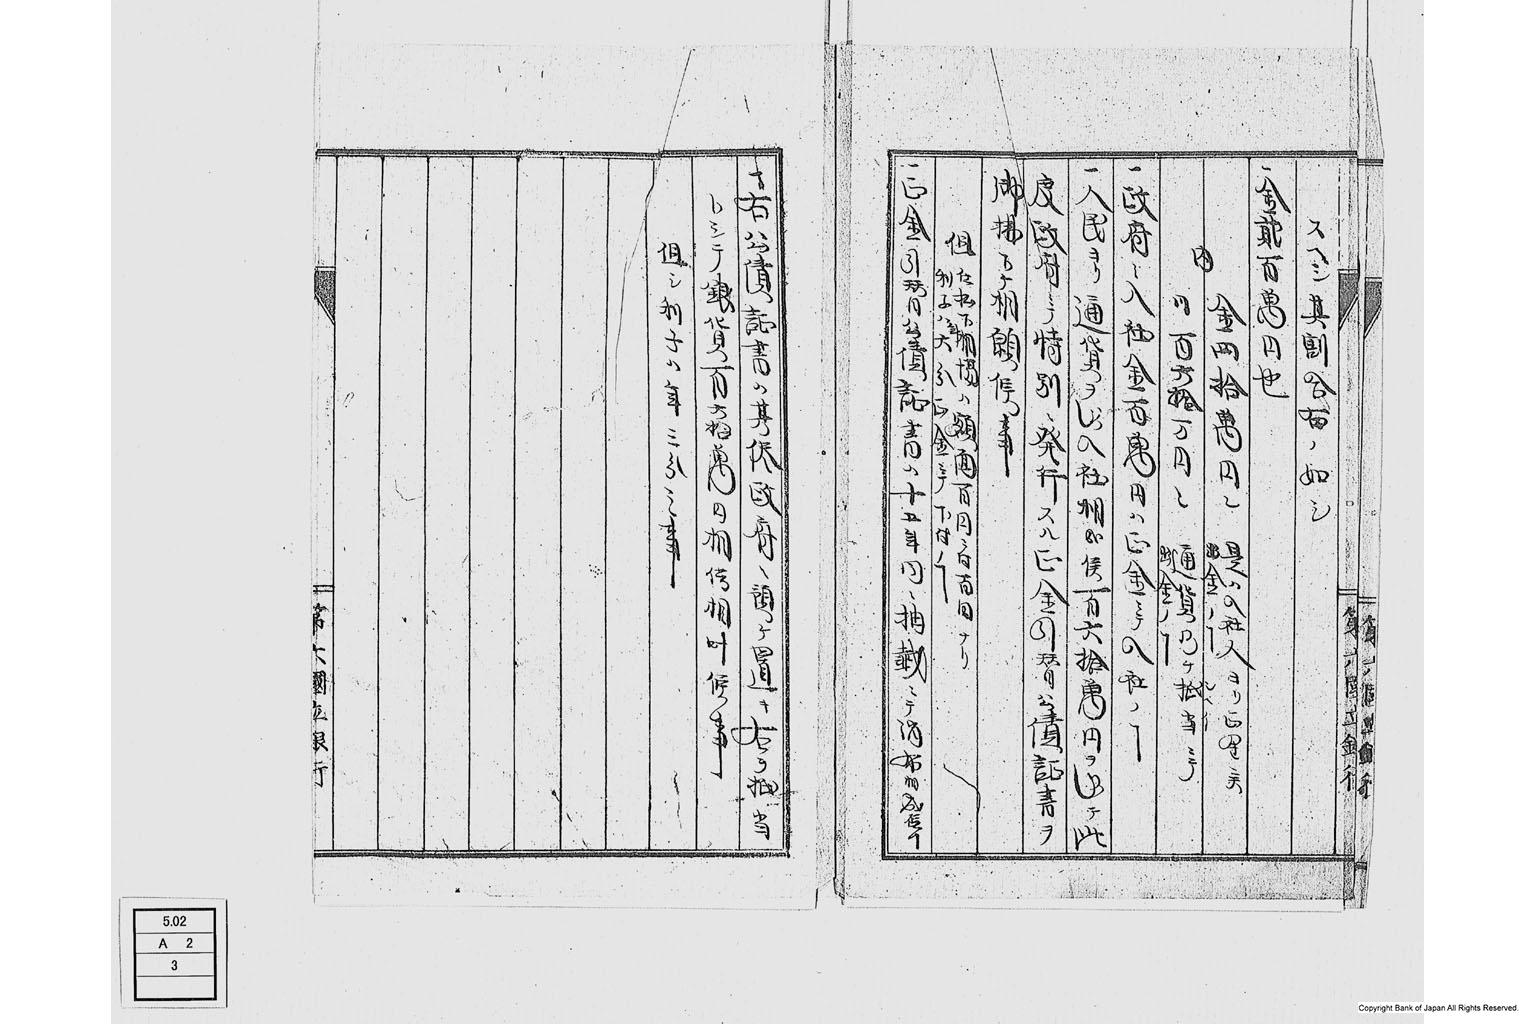 スヘシ其割合左ノ如シ
一金貳百萬円也
内
金四拾萬円ハ 是ハ入社人ヨリ正金ニテ
出金ノ丁
同百六拾万円ハ 通貨ニテ抵当ニテ
出金ノ丁
一政府ヘ入社金百萬円ハ正金ニテ入社ノ丁
一人民ヨリ通貨ヲ以入社相成候百六拾萬円ヲ以テ此
度政府ニテ特別ニ発行スル正金引替公債証書ヲ
御拂下ケ相願候事
但 御拂下相場ハ額面百円ニ付百円ナリ
利子ハ年六分正金ニテ下付ノ丁
一正金引替公債証書ハ十五年内ニ抽籤ニテ消却相成候丁
一右公債証書ハ其侭政府ヘ預ケ置キ右ヲ抵当
トシテ銀貨百六拾萬円相借相叶候事
但シ利子ハ年三分之事
第六國立銀行
第六國立銀行
第六國立銀行
5.02
A 2
3
Copyright Bank of Japan All Rights Reserved.